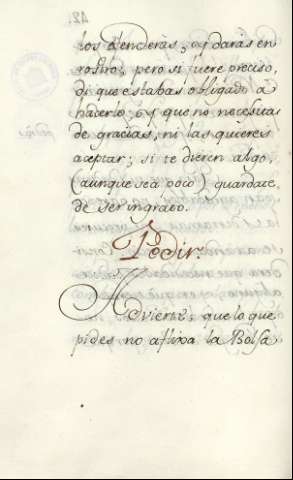 los ofenderàs, ò j daràs en
rostro; pero si fuere preciso,
di que estabas obligado à
hacerlo, ò y que no necesitas
de gracias, ni las quieres
aceptar; si te dieren algo,
(aunque sea poco) guardate
de ser ingrato.
Pedir.
Advierte, que lo que
pides no aflixa la Bolsa